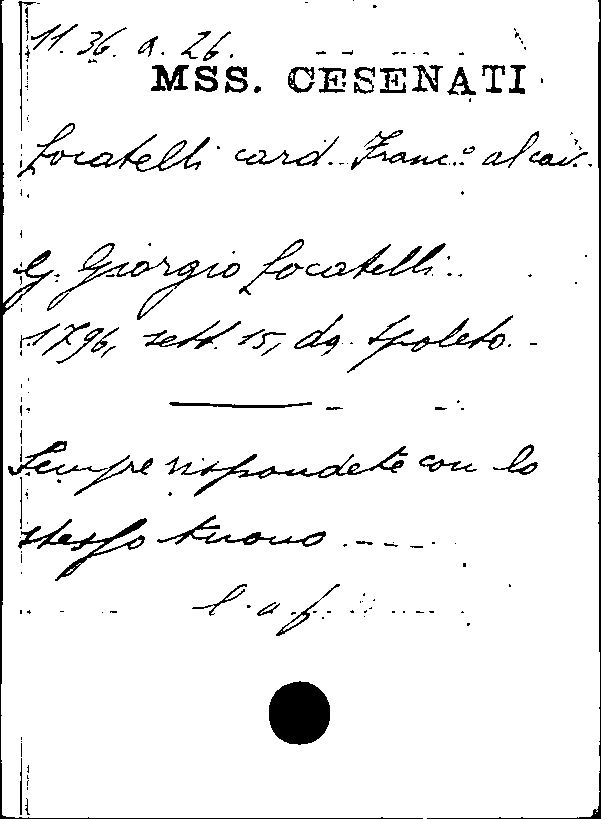 11. 36. a. 26.
MSS. CESENATI
Locatelli card. Franc.º al cav.
G. Giorgio Locatelli.
1796, sett. 15, da Spoleto.
Sempre rispondete con lo
stesso tuono
l. a. f.